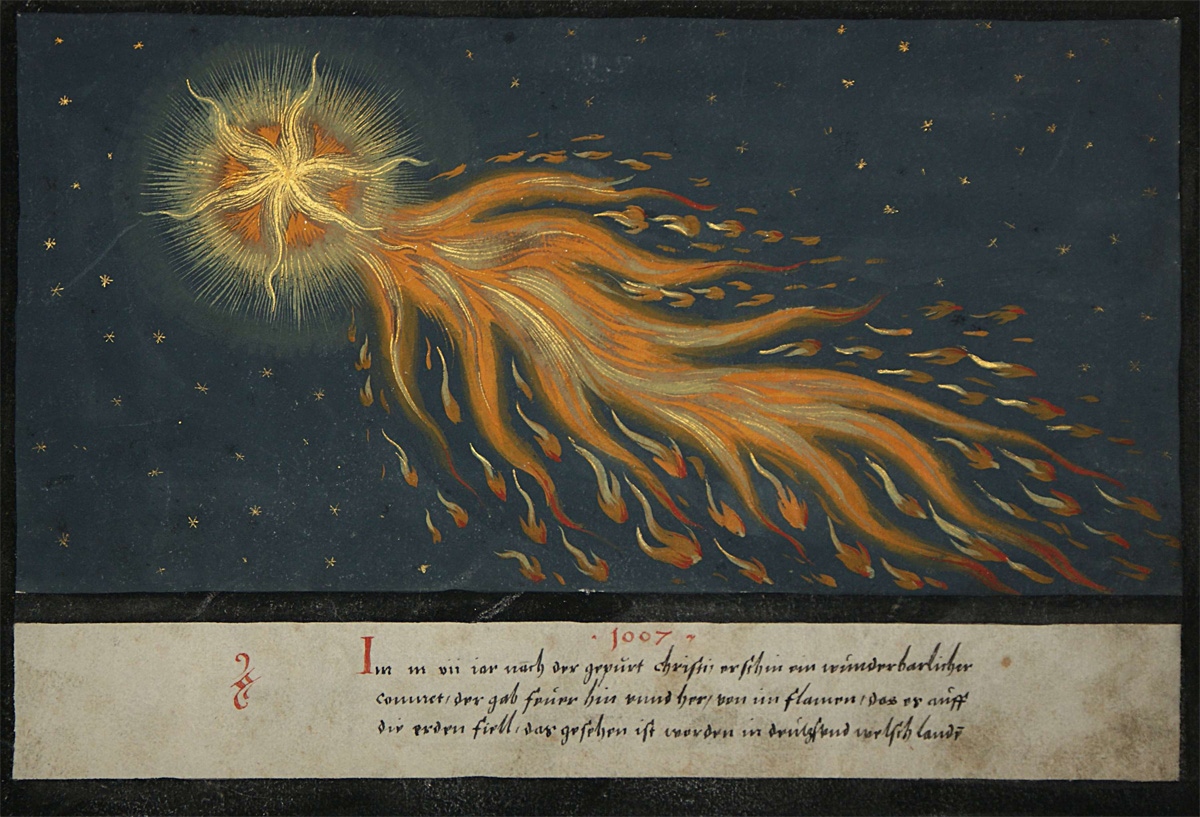 · 1007 ~
Im m vii iar nach der gepurt christi, erschin ein wunderbarlicher
commet, der gab feuer hin vnnd her, von im flamen, das es auff
die erden fiell, das gesehen ist worden in deutzsvnd welsch landē